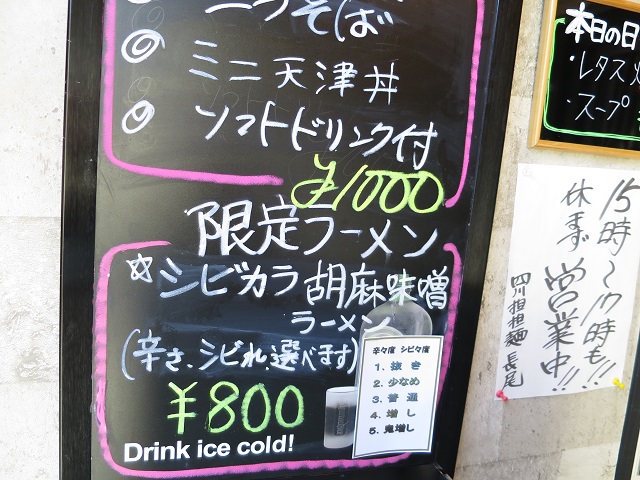 つそば
◎ミニ天津丼
◎ソフトドリンク付
¥1000
限定ラーメン
☆シビカラ胡麻味噌
ラーメン
(辛さ、シビれ選べます)
¥800
Drink ice cold!
辛々度 シビ々度
1. 抜き
2. 少なめ
3. 普通
4. 増し
5. 鬼増し
本日の日
・レタス
・スープ
15時〜17時も!!
休まず営業中!!
四川担担麺 長尾